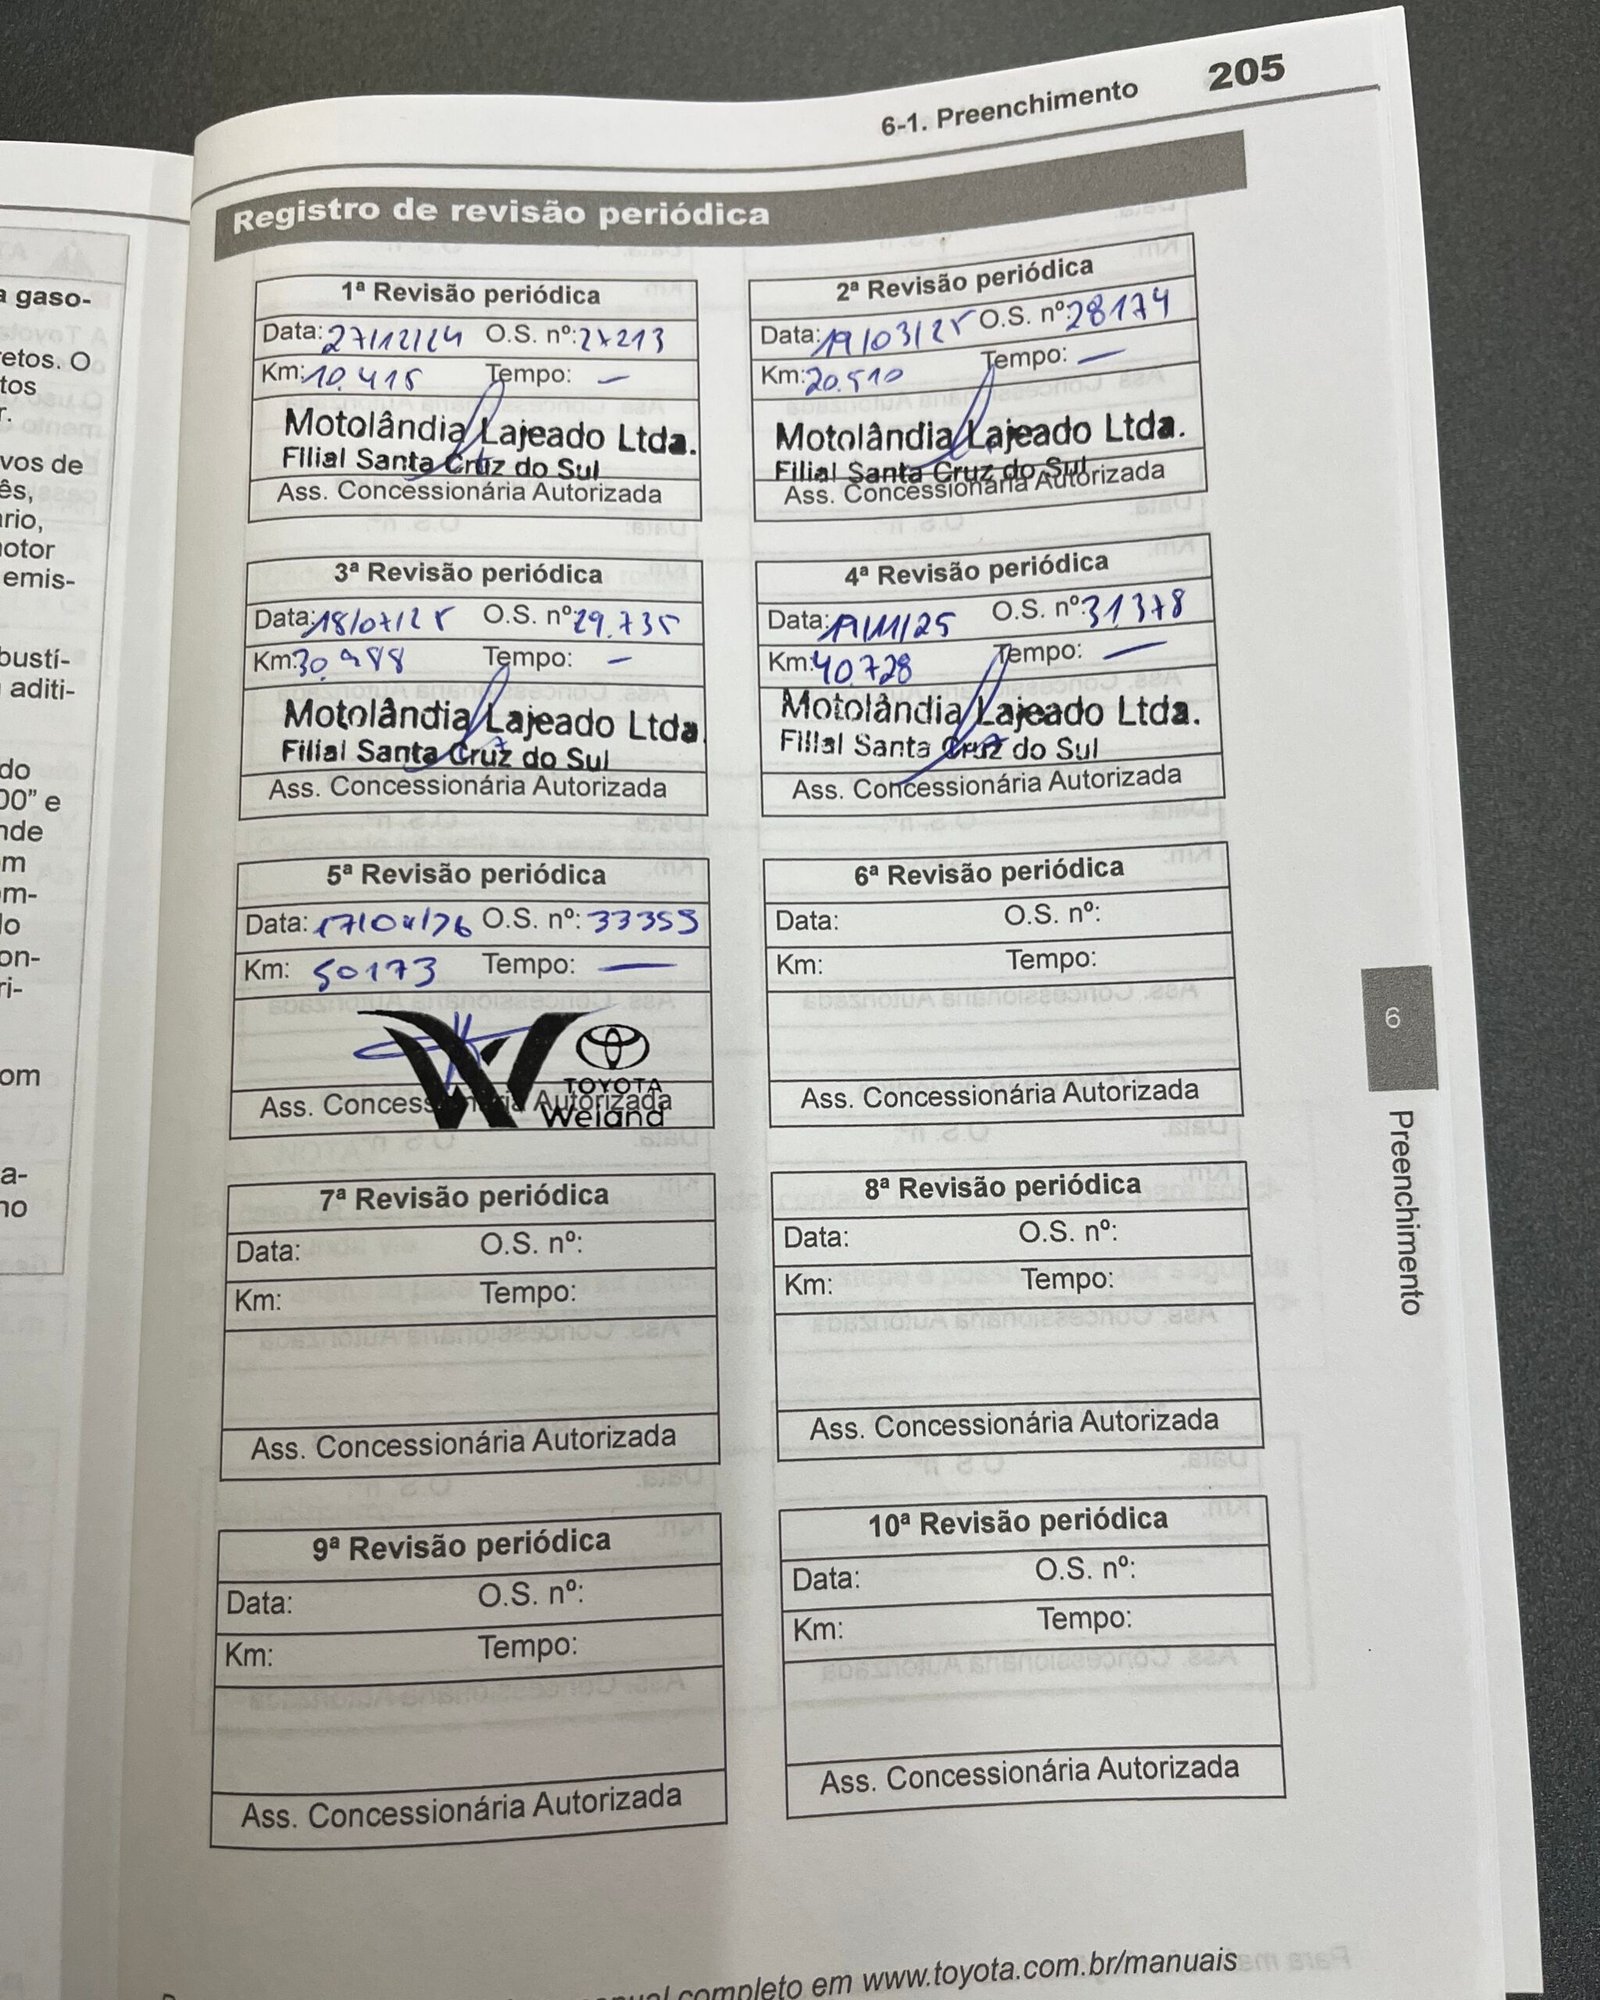 205
6-1. Preenchimento
Registro de revisão periódica
1ª Revisão periódica
Data: 27/12/24 O.S. nº: 27213
Km: 10.415 Tempo: —
Motolândia Lajeado Ltda.
Filial Santa Cruz do Sul
Ass. Concessionária Autorizada
2ª Revisão periódica
Data: 19/03/25 O.S. nº: 28174
Km: 20.510 Tempo: —
Motolândia Lajeado Ltda.
Filial Santa Cruz do Sul
Ass. Concessionária Autorizada
3ª Revisão periódica
Data: 18/07/25 O.S. nº: 29.735
Km: 30.988 Tempo: —
Motolândia Lajeado Ltda.
Filial Santa Cruz do Sul
Ass. Concessionária Autorizada
4ª Revisão periódica
Data: 19/11/25 O.S. nº: 31.378
Km: 40.728 Tempo: —
Motolândia Lajeado Ltda.
Filial Santa Cruz do Sul
Ass. Concessionária Autorizada
5ª Revisão periódica
Data: 17/04/26 O.S. nº: 33355
Km: 50173 Tempo: —
TOYOTA
Weiand
Ass. Concessionária Autorizada
6ª Revisão periódica
Data: O.S. nº:
Km: Tempo:
Ass. Concessionária Autorizada
7ª Revisão periódica
Data: O.S. nº:
Km: Tempo:
Ass. Concessionária Autorizada
8ª Revisão periódica
Data: O.S. nº:
Km: Tempo:
Ass. Concessionária Autorizada
9ª Revisão periódica
Data: O.S. nº:
Km: Tempo:
Ass. Concessionária Autorizada
10ª Revisão periódica
Data: O.S. nº:
Km: Tempo:
Ass. Concessionária Autorizada
6
Preenchimento
completo em www.toyota.com.br/manuais